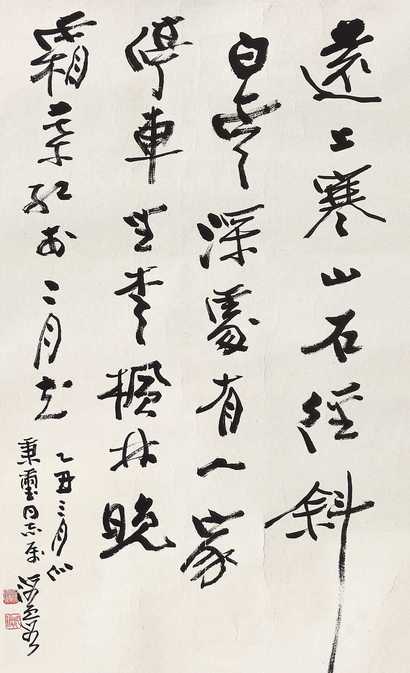 遠上寒山石徑斜
白雲深處有一家
停車坐愛楓林晚
霜葉紅於二月花
乙丑三月
秉 同志